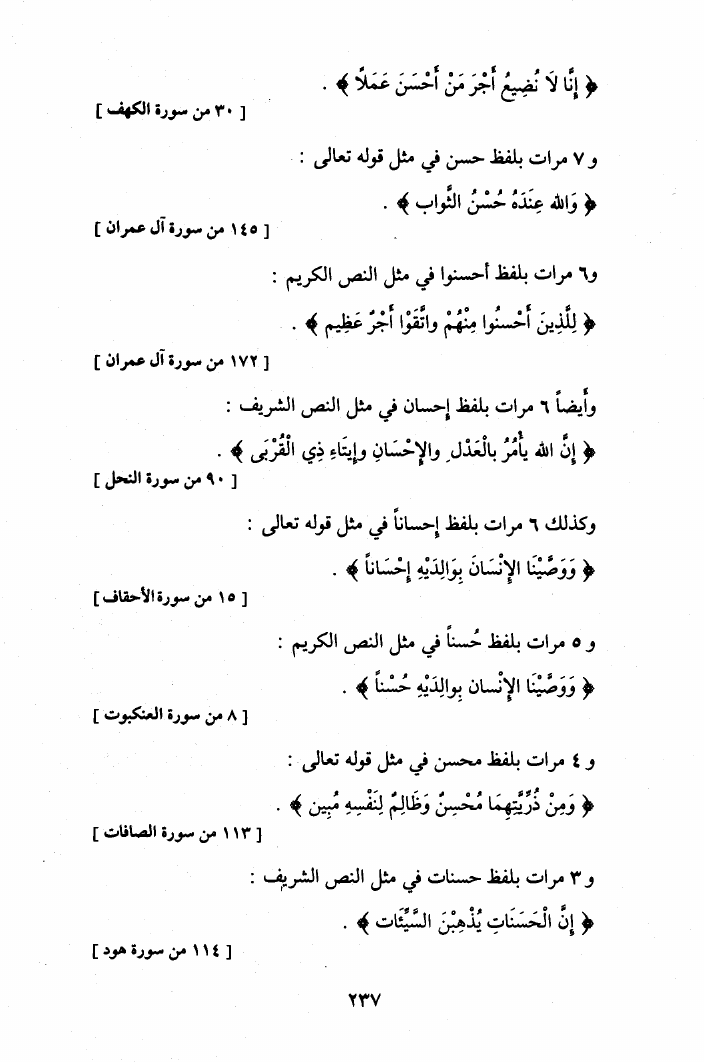 ﴿ إِنَّا لَا نُضِيعُ أَجْرَ مَنْ أَحْسَنَ عَمَلًا ﴾ .
[ ٣٠ من سورة الكهف ]
و ٧ مرات بلفظ حسن في مثل قوله تعالى :
﴿ وَالله عِنْدَهُ حُسْنُ الثَّواب ﴾ .
[ ١٤٥ من سورة آل عمران ]
و٦ مرات بلفظ أحسنوا في مثل النص الكريم :
﴿ لِلَّذِينَ أَحْسنُوا مِنْهُمْ واتَّقَوْا أَجْرٌ عَظِيم ﴾ .
[ ١٧٢ من سورة آل عمران ]
وأيضاً ٦ مرات بلفظ إحسان في مثل النص الشريف :
﴿ إِنَّ الله يأْمُرُ بالْعَدْلِ والإِحْسَانِ وإِيتَاءِ ذِي الْقُرْبَى ﴾ .
[ ٩٠ من سورة النحل ]
وكذلك ٦ مرات بلفظ إحساناً في مثل قوله تعالى :
﴿ وَوَصَّيْنَا الإِنْسَانَ بِوَالِدَيْهِ إِحْسَاناً ﴾ .
[ ١٥ من سورة الأحقاف ]
و ٥ مرات بلفظ حُسناً في مثل النص الكريم :
﴿ وَوَصَّيْنَا الإِنْسان بِوالِدَيْهِ حُسْناً ﴾ .
[ ٨ من سورة العنكبوت ]
و ٤ مرات بلفظ محسن في مثل قوله تعالى :
﴿ وَمِنْ ذُرِّيَّتِهِمَا مُحْسِنٌ وَظَالِمٌ لِنَفْسِهِ مُبِين ﴾ .
[ ١١٣ من سورة الصافات ]
و ٣ مرات بلفظ حسنات في مثل النص الشريف :
﴿ إِنَّ الْحَسَنَاتِ يُذْهِبْنَ السَّيِّئَات ﴾ .
[ ١١٤ من سورة هود ]
٢٣٧